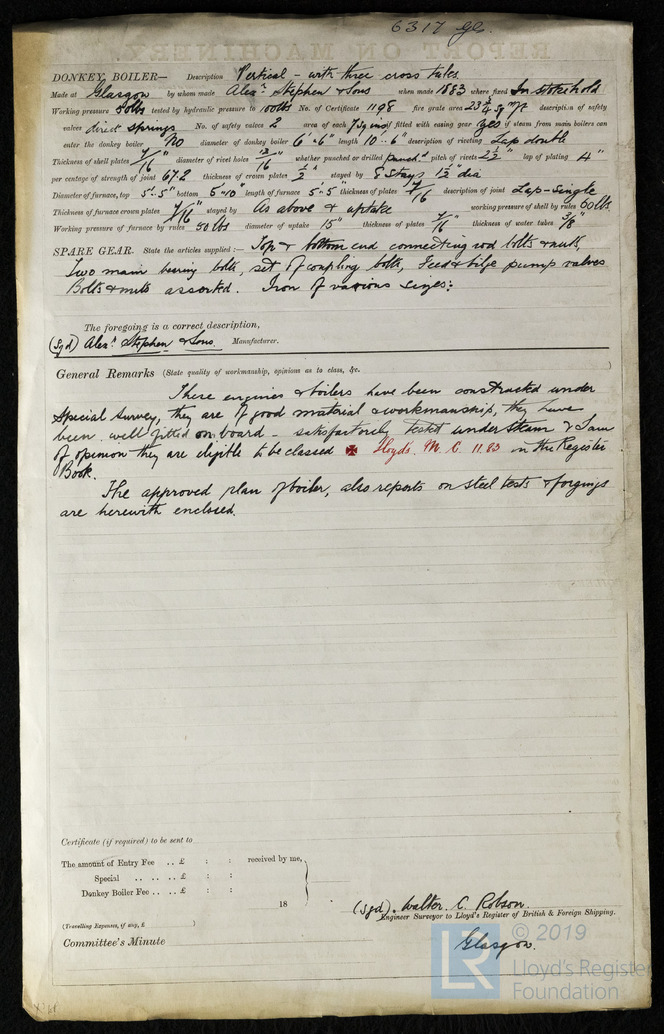 6317 Gls.
REPORT ON MACHINERY
DONKEY BOILER— Description Vertical – with three cross tubes
Made at Glasgow by whom made Alexr. Stephen & Sons when made 1883 where fixed In stokehold
Working pressure 50lbs tested by hydraulic pressure to 100lbs No. of Certificate 1198 fire grate area 23 3/4 sq ft description of safety
valves direct springs No. of safety valves 2 area of each 7 sq ins if fitted with easing gear yes if steam from main boilers can
enter the donkey boiler No diameter of donkey boiler 6'-6" length 10'-6" description of riveting Lap double
Thickness of shell plates 7/16" diameter of rivet holes 13/16" whether punched or drilled punchd. pitch of rivets 2 1/2" lap of plating 4"
per centage of strength of joint 67.2 thickness of crown plates 1/2" stayed by 8 Stays 1 1/2" dia
Diameter of furnace, top 5'-5" bottom 5'-10" length of furnace 5'-5" thickness of plates 7/16 description of joint Lap-Single
Thickness of furnace crown plates 7/16" stayed by As above & uptake working pressure of shell by rules 60lbs.
Working pressure of furnace by rules 50 lbs diameter of uptake 15" thickness of plates 7/16" thickness of water tubes 3/8"
SPARE GEAR. State the articles supplied :— Top & bottom end connecting rod bolts & nuts,
Two main bearing bolts, set of coupling bolts, Feed & bilge pump valves
Bolts & nuts assorted. Iron of various sizes:
The foregoing is a correct description,
(Sgd) Alexr. Stephen & Sons. Manufacturer.
General Remarks (State quality of workmanship, opinions as to class, &c.
These engines & boilers have been constructed under
Special Survey, they are of good material & workmanship, they have
been well fitted on board – satisfactorily tested under steam & I am
of opinion they are eligible to be classed ✠ Lloyds. M. C. 11.83 in the Register
Book.
The approved plan of boiler, also reports on steel tests & forgings
are herewith enclosed.
Certificate (if required) to be sent to
The amount of Entry Fee .. £ : : received by me,
Special .. .. .. £ : :
Donkey Boiler Fee .. .. £ : :
18
(Sgd). Walter. C. Robson.
(Travelling Expenses, if any, £ )
Engineer Surveyor to Lloyd's Register of British & Foreign Shipping.
Committee's Minute
Glasgow.
LR © 2019
Lloyd's Register
Foundation